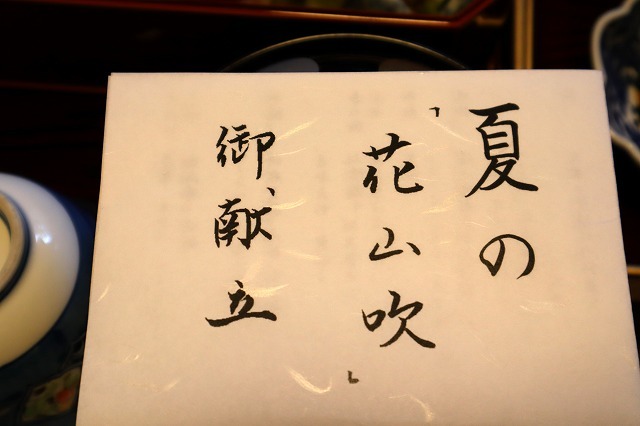 夏の
「花山吹」
御献立